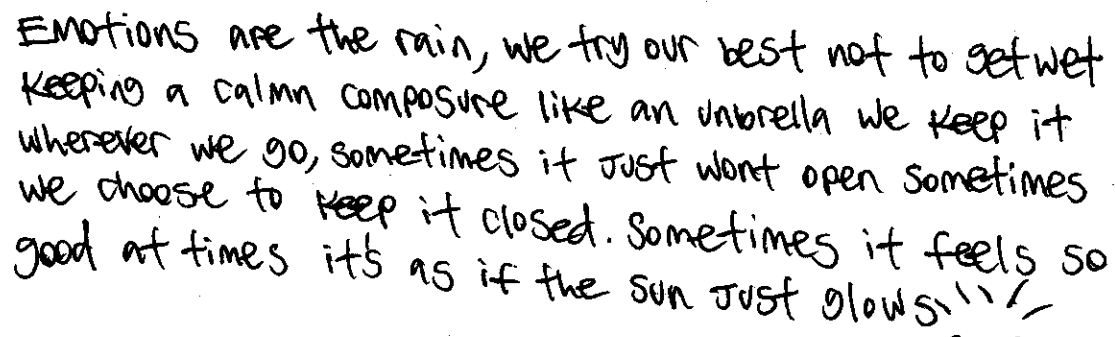 Emotions are the rain, we try our best not to get wet
Keeping a calmn composure like an unbrella we keep it
wherever we go, sometimes it Just wont open sometimes
we choose to keep it closed. Sometimes it feels so
good at times it's as if the sun Just glows